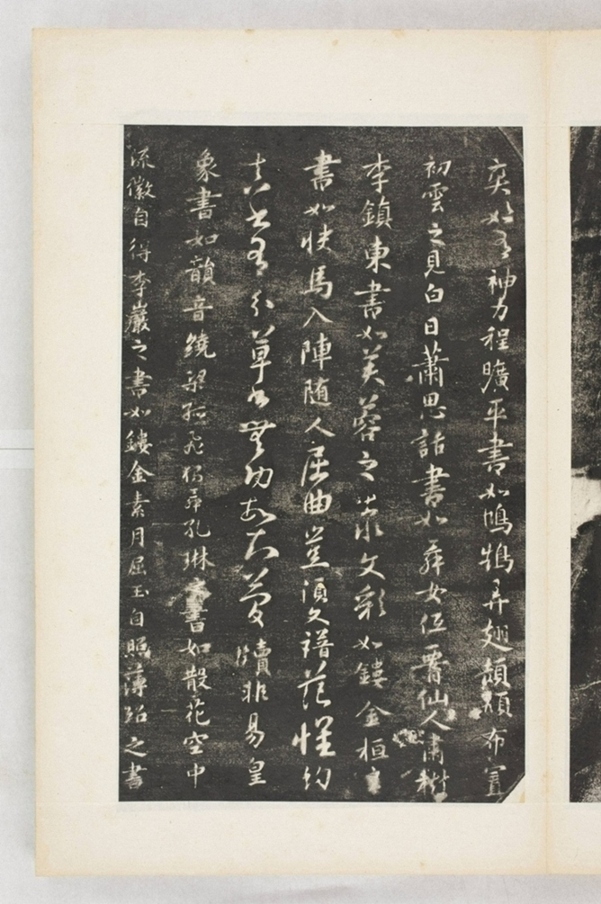 奕奕有神力程曠平書如鴻鵠弄翅頡頏布置
初雲之見白日蕭思話書如舞女低腰仙人嘯樹
李鎮東書如芙蓉之出水文彩如鏤金桓
書如快馬入陣隨人屈曲豈須文譜范懷約
真書有分草書無功故知簡牘非易皇
象書如韻音繞梁孤飛獨舞孔琳之書如散花空中
流徽自得李巖之書如鏤金素月屈玉自照薄紹之書